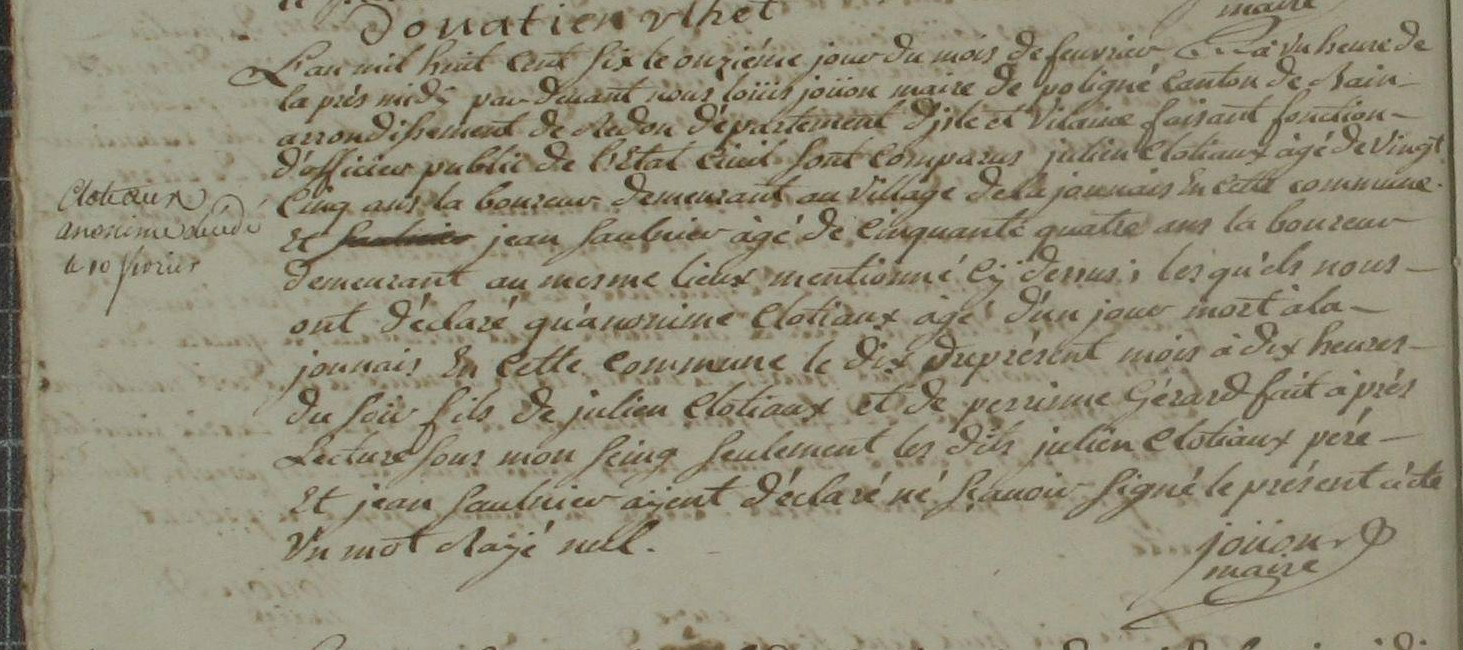 maire
Donatien rhet
L'an mil huit Cent six le onziéme jour du mois de feuvrier à Vn heure de
la prés midi par devant nous loüis joüon maire de poligné Canton de Bain-
arrondissement de Redon Département d'jle et Vilaine faisant fonction-
d'officier public de l'Etat Civil sont Comparus julien Clotiaux àgé de Vingt
Cinq ans la boureur demeurant au Village de la jounais En Cette commune.
Et jean saulnier àgé de Cinquante quatre ans la boureur
Demeurant au mesme lieux mentionné Cy dessus; lesqu'els nous-
ont déclaré qu'anonime Clotiaux agé d'un jour mort à la-
jounais En Cette Commune le dix du présent mois à dix heures-
du soir fils de julien Clotiaux et de perrinne Gérard fait à prés
Lecture sous mon seing seulement les dits julien Clotiaux peré-
Et jean saulnier ayent déclaré né sçauoir signé le présent acte
Vn mot Rayé nul.
Clotiaux
anonime décédé
le 10 février
joüon
maire